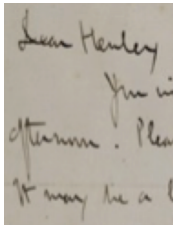 Dear Henley
You
afternoon. Plea
It may be a